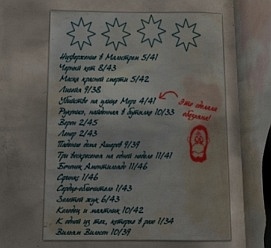 Низвержение в Мальстрим 5/41
Черный кот 8/43
Маска красной смерти 5/42
Лигейя 9/38
Убийство на улице Морг 4/41
Рукопись, найденная в бутылке 10/33
Ворон 2/45
Линор 2/43
Падение дома Ашеров 9/39
Три воскресенья на одной неделе 11/41
Бочонок Амонтильядо 11/46
Сфинкс 1/46
Сердце-обличитель 1/43
Золотой жук 6/43
Колодец и маятник 10/42
К одной из тех, которые в раю 1/34
Вильям Вильсон 10/39
Это сделали